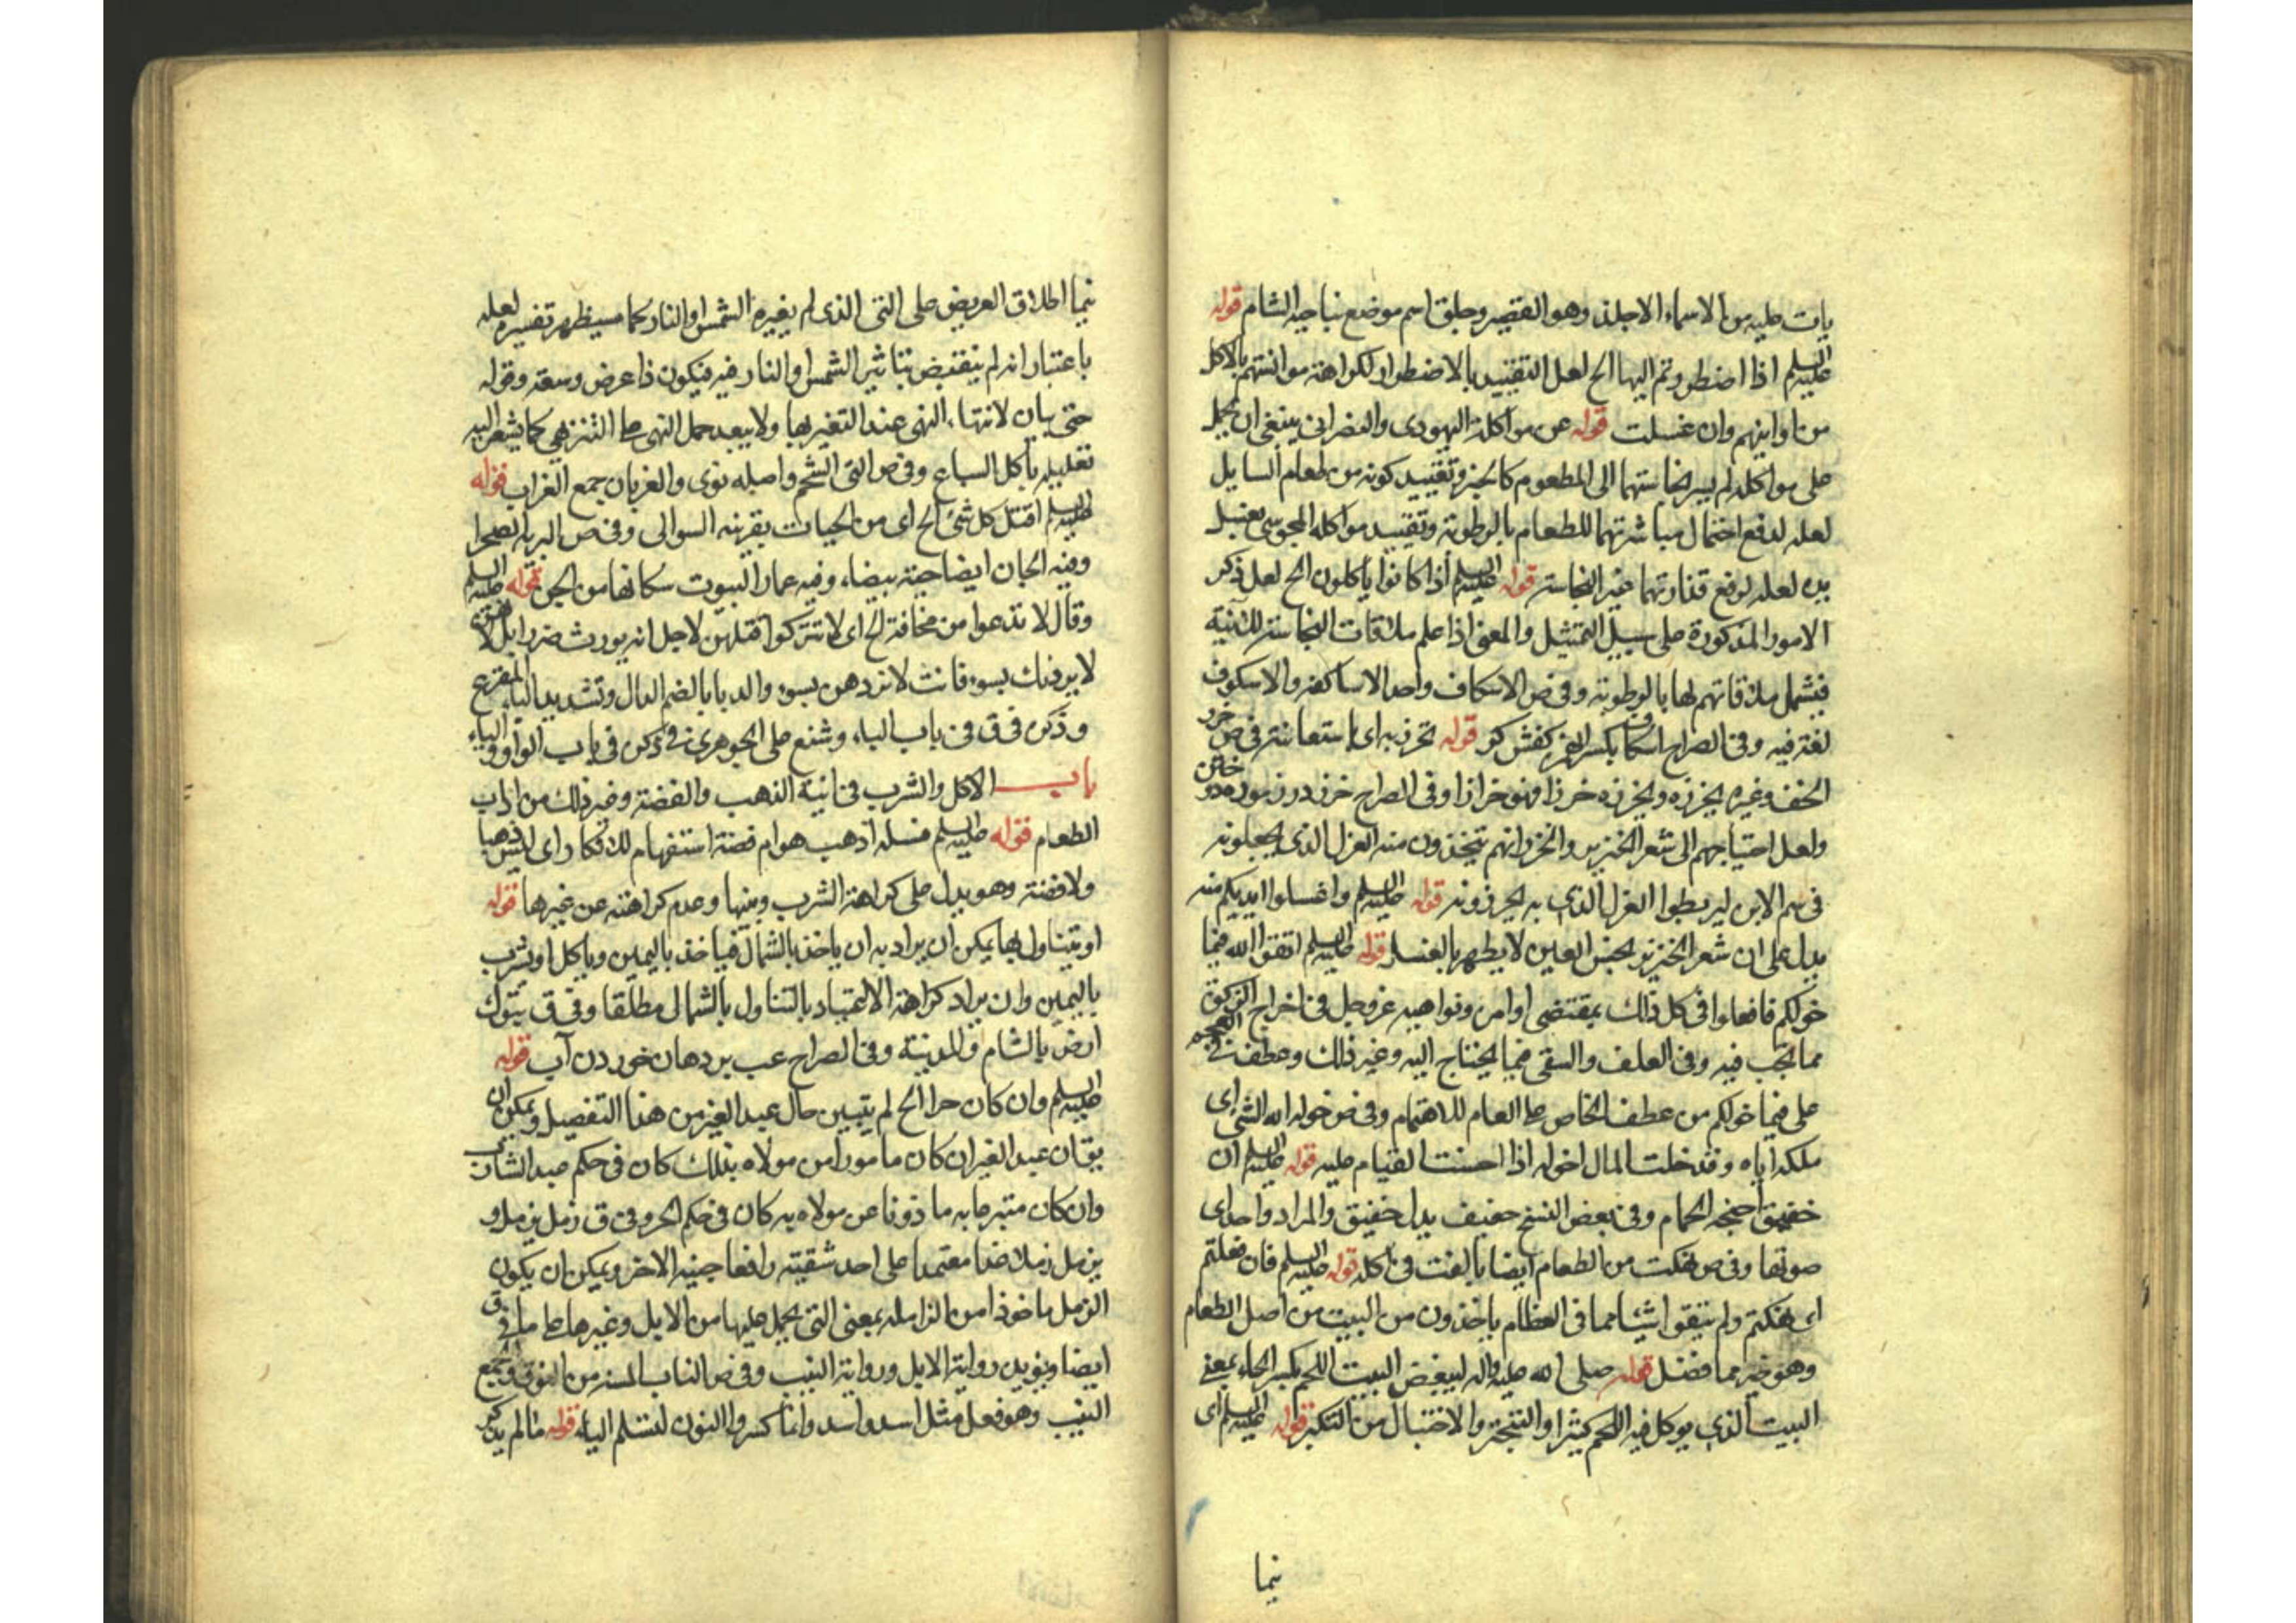 يات عليه من الاسماء الاجلة وهو القصير وحلق اسم موضع بناحية الشام قوله
عليه السلم اذا اضطررتم اليها الخ لعل التقييد بالاضطرار لكراهة موانستهم بالاكل
من اوانيهم وان غسلت قوله عن مواكلة اليهودى والنصرانى ينبغى ان يحمل
على مواكلة لم يسر نجاستهما الى المطعوم كالخبز وتقييد كونه من طعام السايل
لعله لدفع احتمال مباشرتهما للطعام بالرطوبة وتقييد مواكلة المجوسى بغسل
يده لعله لرفع قذارتهما غير النجاسة قوله عليه السلم اذا كانوا ياكلون الخ لعل ذكر
الامور المذكورة على سبيل التمثيل والمعنى اذا علم ملاقات النجاسة للانية
فيشمل ملاقاتهم لها بالرطوبة وفى ص الاسكاف واحد الاساكفة والاسكوف
لغة فيه وفى الصراح اسكاف بكسر الهمزة كفش كر قوله نخرز به اى باستعانته فى ص خرز
الخف وغيره يخرزه ويخرزه خرزا فهو خراز وفى الصراح خرز درز موزه دوختن
ولعل احتياجهم الى شعر الخنزير والخرز انهم يتخذون منه الغزل الذى يجعلونه
فى سم الابره ليربطوا الغزل الذى به يخرزونه قوله عليه السلم واغسلوا ايديكم منه
يدل على ان شعر الخنزير نجس العين لا يطهر بالغسل قوله عليه السلم اتقوا الله فيما
خولكم فافعلوا فى كل ذلك بمقتضى اوامره ونواهيه عز وجل فى اخراج الزكوة
مما تجب فيه وفى العلف والسقى فيما يحتاج اليه وغير ذلك وعطف فى العجم
على فيما خولكم من عطف الخاص على العام للاهتمام وفى ص خوله الله الشئ اى
ملكه اياه وقد خلت المال اخوله اذا احسنت القيام عليه قوله عليه السلم ان
خفيق اجنحة الحمام وفى بعض النسخ حفيف بدل خفيق والمراد واحد اى
صوتها وفى ص نهكت من الطعام ايضا بالغت فى اكله قوله عليه السلم فان فعلتم
اى نهكتم ولم تبقوا شيئا مما فى العظام ياخذون من البيت من اصل الطعام
وهو خير مما فضل قوله صلى الله عليه واله ليبغض البيت اللحم بكسر الحاء بمعنى
البيت الذى يوكل فيه اللحم كثيرا والتبختر والاختيال من التكبر قوله عليه السلم اى
نيما
نيما اطلاق العريض على النى الذى لم يغيره الشمس او النار كما سيظهر تفسيره لعله
باعتبار انه لم ينقبض بتاثير الشمس والنار فيه فيكون ذا عرض وسعة وقوله
حتى بيان لانتهاء النهى عند التغير بها ولا يبعد حمل النهى على التنزهى كما يشعر اليه
تعليله باكل السباع وفى ص النى الشحم واصله نوى والغربان جمع الغراب قوله
عليه السلم اقتل كل شئ الخ اى من الحيات بقرينة السوال وفى ص البرية الصحرا
وفيه الجان ايضا حية بيضاء وفيه عمار البيوت سكانها من الجن قوله عليه السلم
وقال لا تدعوا من مخافة الخ اى لا تتركوا قتلهن لاجل انه يورث ضررا بل
لا يردنك بسوء فانت لا تردهن بسوء والدبا بالضم الدال وتشديد الباء القرع
وذكره فى ق فى باب الباء وشنع على الجوهرى فى ذكره فى باب الواو والياء
باب الاكل والشرب فى انية الذهب والفضة وغير ذلك من اداب
الطعام قوله عليه السلم فسله اذهب هو ام فضة استفهام للانكار اى ليس ذهبا
ولا فضة وهو يدل على كراهة الشرب وبينها وعدم كراهته عن غيرها قوله
او يتناول بها يمكن ان يراد به ان ياخذ بالشمال فياخذ باليمين وياكل او يشرب
باليمين وان يراد كراهة الاعتياد بالتناول بالشمال مطلقا وفى ق تبوك
ارض بالشام والمدينة وفى الصراح عب بر دهان خوردن آب قوله
عليه السلم وان كان حرا الخ لم يتبين حال عبد الغير من هذا التفصيل ويمكن ان
يق ان عبد الغير ان كان مامورا من مولاه بذلك كان فى حكم عبد الشارب
وان كان متبرعا به ماذونا عن مولاه به كان فى حكم الحر وفى ق زمل يزمل و
يزمل زملا عدا معتمدا على احد شقيه رافعا جنبه الاخر ويمكن ان يكون
الزمل ماخوذا من الزاملة بمعنى التى يحمل عليها من الابل وغيرها على ما فى ق
ايضا ويؤيده رواية الابل ورواية النيب وفى ص الناب المسنة من النوق والجمع
النيب وهو فعل مثل اسد واسد وانما كسروا النون لتسلم الياء قوله ما لم يذكر